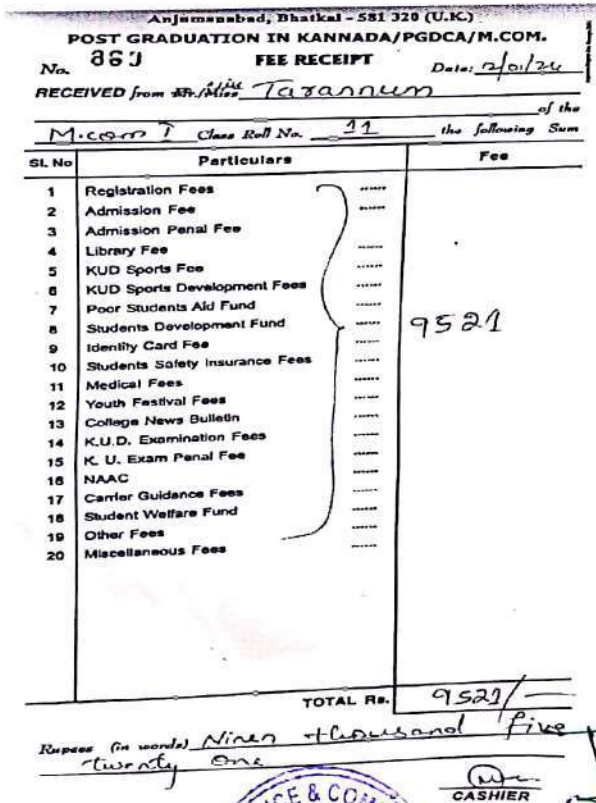 Anjumanabad, Bhatkal - 581 320 (U.K.)
POST GRADUATION IN KANNADA/PGDCA/M.COM.
No. 863 FEE RECEIPT Date: 2/01/24
RECEIVED from Mr./Miss Tarannum
of the
M.com I Class Roll No. 11 the following Sum
SI. No Particulars Fee
1 Registration Fees
2 Admission Fee
3 Admission Penal Fee
4 Library Fee
5 KUD Sports Fee
6 KUD Sports Development Fees
7 Poor Students Aid Fund
8 Students Development Fund 9521
9 Identity Card Fee
10 Students Safety Insurance Fees
11 Medical Fees
12 Youth Festival Fees
13 College News Bulletin
14 K.U.D. Examination Fees
15 K. U. Exam Penal Fee
16 NAAC
17 Carrier Guidance Fees
18 Student Welfare Fund
19 Other Fees
20 Miscellaneous Fees
TOTAL Rs. 9521/—
Rupees (in words) Ninen thousand five
twenty One
CASHIER